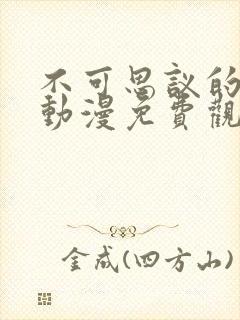 不可思议的
動漫免費觀
金成(四方山)